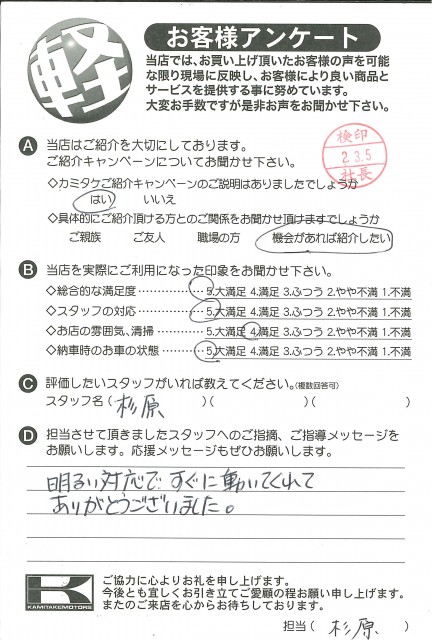 軽
お客様アンケート
当店では、お買い上げ頂いたお客様の声を可能
な限り現場に反映し、お客様により良い商品と
サービスを提供する事に努めています。
大変お手数ですが是非お声をお聞かせ下さい。
A 当店はご紹介を大切にしております。
ご紹介キャンペーンについてお聞かせ下さい。
検印
2.3.5
社長
◇カミタケご紹介キャンペーンのご説明はありましたでしょうか
はい いいえ
◇具体的にご紹介頂ける方とのご関係をお聞かせ頂けますでしょうか
ご親族 ご友人 職場の方 機会があれば紹介したい
B 当店を実際にご利用になった印象をお聞かせ下さい。
◇総合的な満足度………… 5.大満足 4.満足 3.ふつう 2.やや不満 1.不満
◇スタッフの対応………… 5.大満足 4.満足 3.ふつう 2.やや不満 1.不満
◇お店の雰囲気、清掃…… 5.大満足 4.満足 3.ふつう 2.やや不満 1.不満
◇納車時のお車の状態…… 5.大満足 4.満足 3.ふつう 2.やや不満 1.不満
C 評価したいスタッフがいれば教えてください。(複数回答可)
スタッフ名(杉原 )( )( )
D 担当させて頂きましたスタッフへのご指摘、ご指導メッセージを
お願いします。応援メッセージもぜひお願いします。
明るい対応で すぐに動いてくれて
ありがとうございました。
K
KAMITAKEMOTORS
ご協力に心よりお礼を申し上げます。
今後とも宜しくお引き立てご愛顧の程お願い申し上げます。
またのご来店を心からお待ちしております。
担当( 杉原 )